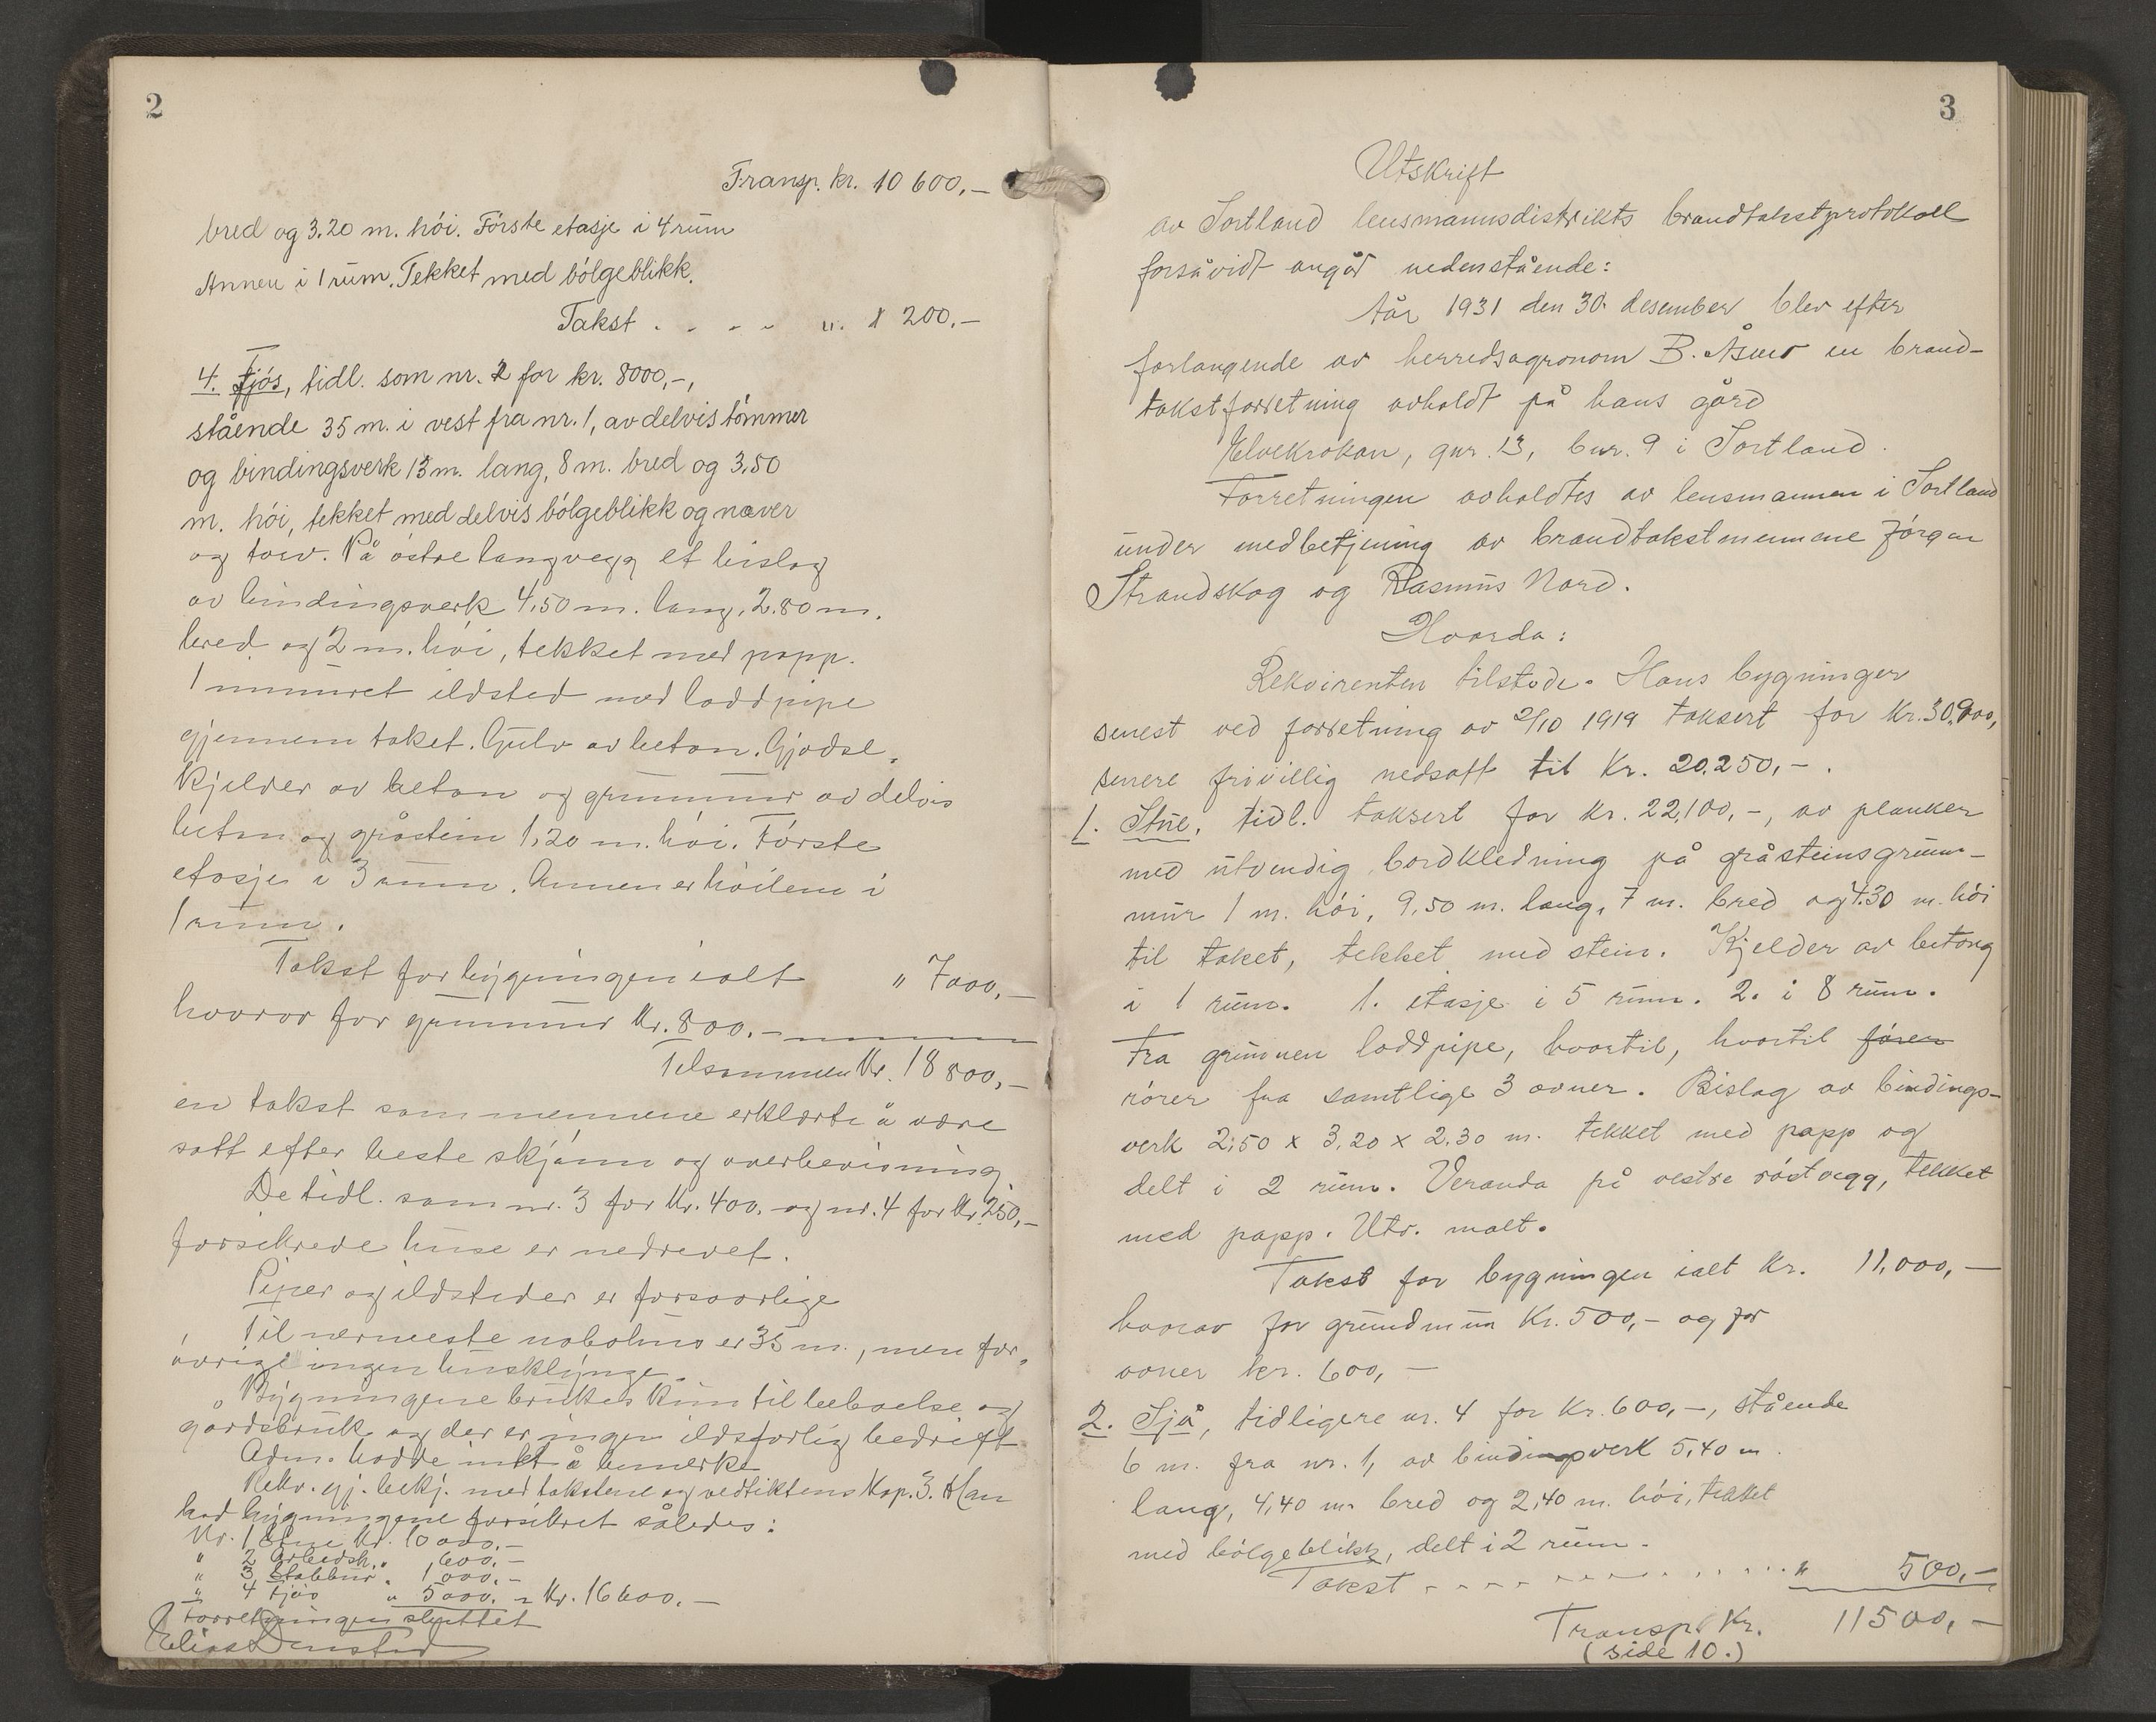 2
Transp. kr. 10 600,-
bred og 3.20 m. hói. Fórste etasje i 4 rum
Annen i 1 rum. Tekket med bólgeblikk.
Takst . . . . " 1 200.-
4. Fjós, tidl. som nr. 2 for kr. 8000,-,
stående 35 m. i vest fra nr. 1, av delvis tómmer
og bindingsverk 13 m. lang, 8 m. bred og 3,50
m. hói, tekket med delvis bólgeblikk og næver
og torv. På óstre langvegg et bislag
av bindingsverk 4,50 m. lang, 2.80 m.
bred og 2 m. hói, tekket med papp.
1 innmuret ildsted med loddpipe
gjennem taket. Gulv av beton. Gjødsel-
kjelder av beton og grunnmur av delvis
beton og gråstein 1,20 m. hói. Fórste
etasje i 3 rum. Annen er hóilem i
1 rum.
Takst for bygningen ialt " 7000,-
hvorav for grunnmur kr. 800.-
Tilsammen kr. 18 800,-
en takst som mennene erklærte å være
satt efter beste skjónn og overbevisning.
De tidl. som nr. 3 for kr. 400. og nr. 4 for kr. 250,-
forsikrede huse er nedrevet.
Piper og ildsteder er forsvarlige
Til nærmeste nabohus er 35 m., men for-
óvrig ingen husklynge.
Bygningene brukes kun til beboelse og
gårdsbruk og der er ingen ildsfarlig bedrift
Adm. hadde intet å bemerke
Rekv. gj. bekj. med takstene og vedtektens Kap. 3. Han
had bygningene forsikret således:
Nr. 1 Stue kr. 10 000.-
" 2 Arbeidsh. " 600.-
" 3 Stabbur " 1 000.-
" 4 Fjós " 5 000. = kr. 16 600.-
Forretningen sluttet
Elias

3
Utskrift
av Sortland lensmannsdistrikts brandtakstprotokoll
forsåvidt angår nedenstående:
År 1931 den 30. desember blev efter
forlangende av herredsagronom B. Åsmo en brand-
takstforretning avholdt på hans gård
Elvekrokan, gnr. 13, bnr. 9 i Sortland.
Forretningen avholdtes av lensmannen i Sortland
under medbetjening av brandtakstmennene Jórgen
Strandskog og Rasmus Nord.
Hvorda:
Rekvirenten tilstede. Hans bygninger
senest ved forretning av 2/10 1919 taksert for kr. 30,900,
senere frivillig nedsatt til Kr. 20.250,-.
1. Stue, tidl. taksert for kr. 22,100,-, av planker
med utvendig bordkledning på gråsteinsgrunn-
mur 1 m. hói, 9,50 m. lang, 7 m. bred og 4.30 m. hói
til taket, tekket med stein. Kjelder av betong
i 1 rum. 1. etasje i 5 rum. 2. i 8 rum.
Fra grunnen loddpipe, hvortil, hvortil fórer
rórer fra samtlige 3 ovner. Bislag av bindings-
verk 2,50 x 3,20 x 2,30 m. tekket med papp og
delt i 2 rum. Veranda på vestre róstvegg, tekket
med papp. Utv. malt.
Takst for bygningen ialt kr. 11,000,-
hvorav for grundmur Kr. 500,- og for
ovner kr. 600,-
2. Sjå, tidligere nr. 4 for kr. 600,-, stående
6 m. fra nr. 1, av bindingsverk 5,40 m.
lang, 4,40 m. bred og 2,40 m. hói, tekket
med bólgeblikk, delt i 2 rum.
Takst . . . . . . . . . " 500,-
Transp. Kr. 11500,-
(side 10.)